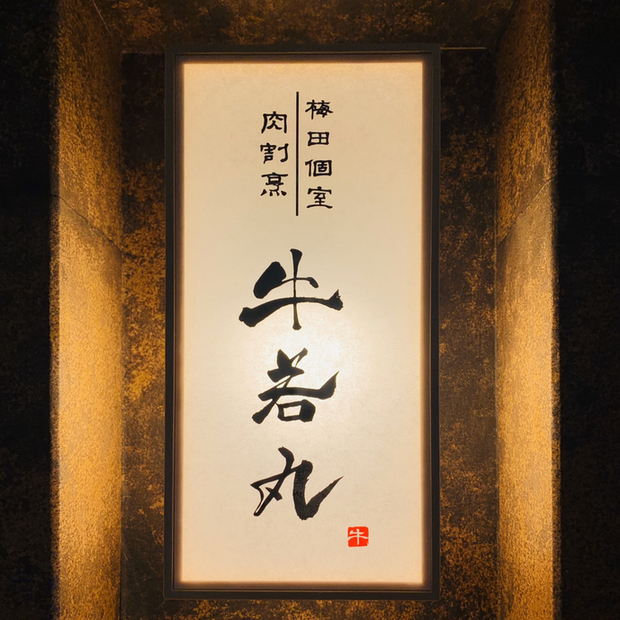 梅田個室
肉割烹
牛若丸
牛